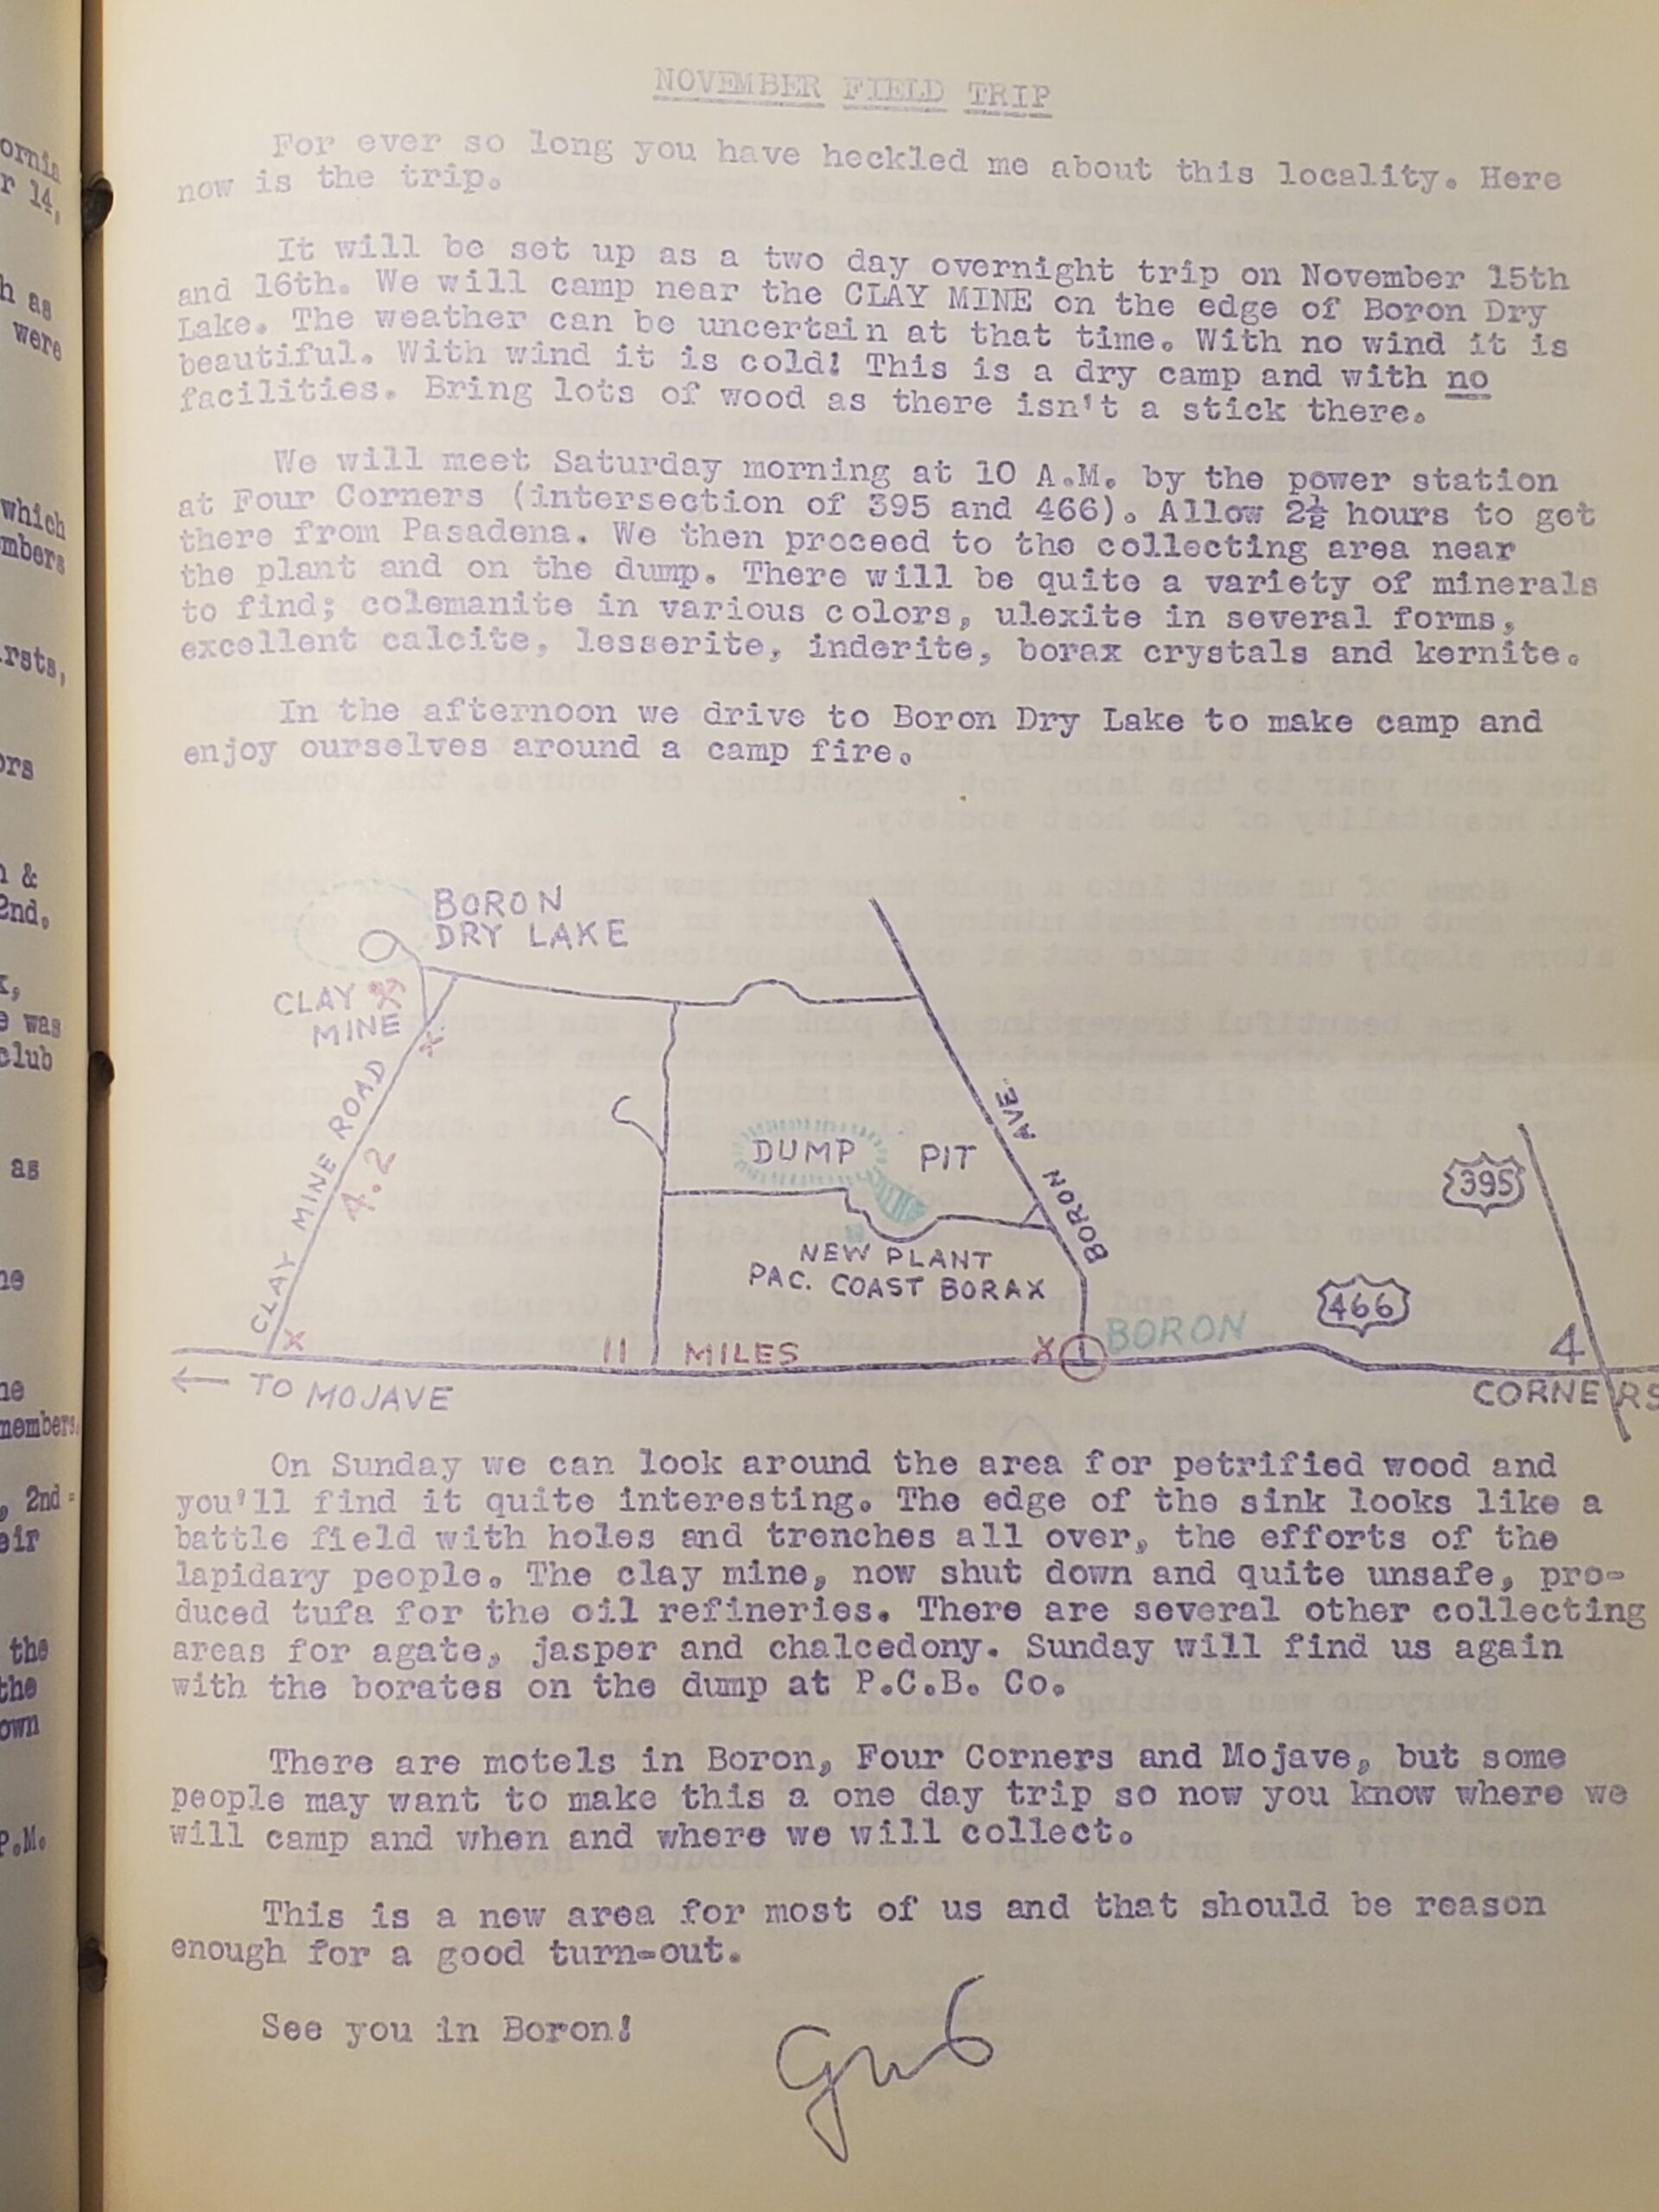 NOVEMBER FIELD TRIP
For ever so long you have heckled me about this locality. Here
now is the trip.
It will be set up as a two day overnight trip on November 15th
and 16th. We will camp near the CLAY MINE on the edge of Boron Dry
Lake. The weather can be uncertain at that time. With no wind it is
beautiful. With wind it is cold! This is a dry camp and with no
facilities. Bring lots of wood as there isn't a stick there.
We will meet Saturday morning at 10 A.M. by the power station
at Four Corners (intersection of 395 and 466). Allow 2½ hours to get
there from Pasadena. We then proceed to the collecting area near
the plant and on the dump. There will be quite a variety of minerals
to find; colemanite in various colors, ulexite in several forms,
excellent calcite, lesserite, inderite, borax crystals and kernite.
In the afternoon we drive to Boron Dry Lake to make camp and
enjoy ourselves around a camp fire.
BORON
DRY LAKE
CLAY
MINE
CLAY MINE ROAD
4.2
DUMP PIT
BORON AVE.
NEW PLANT
PAC. COAST BORAX
395
466
BORON
11 MILES
4
CORNERS
← TO MOJAVE
On Sunday we can look around the area for petrified wood and
you'll find it quite interesting. The edge of the sink looks like a
battle field with holes and trenches all over, the efforts of the
lapidary people. The clay mine, now shut down and quite unsafe, pro-
duced tufa for the oil refineries. There are several other collecting
areas for agate, jasper and chalcedony. Sunday will find us again
with the borates on the dump at P.C.B. Co.
There are motels in Boron, Four Corners and Mojave, but some
people may want to make this a one day trip so now you know where we
will camp and when and where we will collect.
This is a new area for most of us and that should be reason
enough for a good turn-out.
See you in Boron!
ornia
r 14,
h as
were
which
mbers
rsts,
ors
n &
2nd.
e was
club
as
he
members.
, 2nd
eir
the
the
own
P.M.